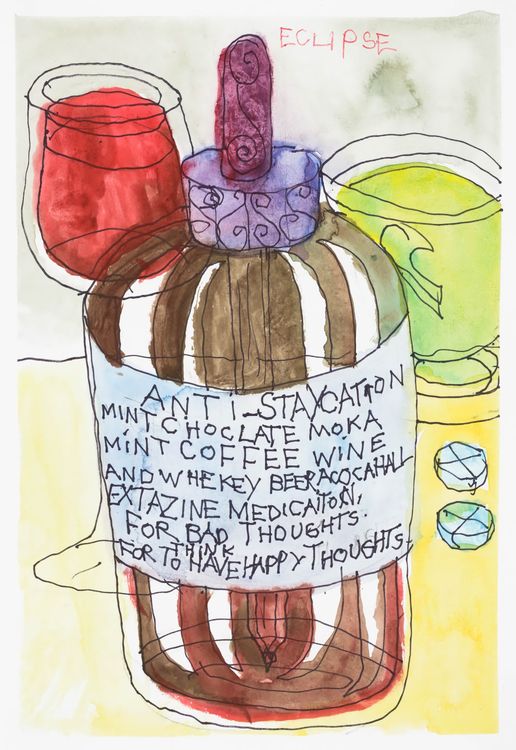 ECLIPSE
ANTi-STAYCATiON
MINT CHOCLATE MOKA
MiNT COFFEE WINE
AND WHEKEY BEER ACOCAHALL
EXTAZINE MEDiCAiTON,
FOR BAD THOUGHTS.
THINK
FOR TO HAVE HAPPY THOUGHTS.